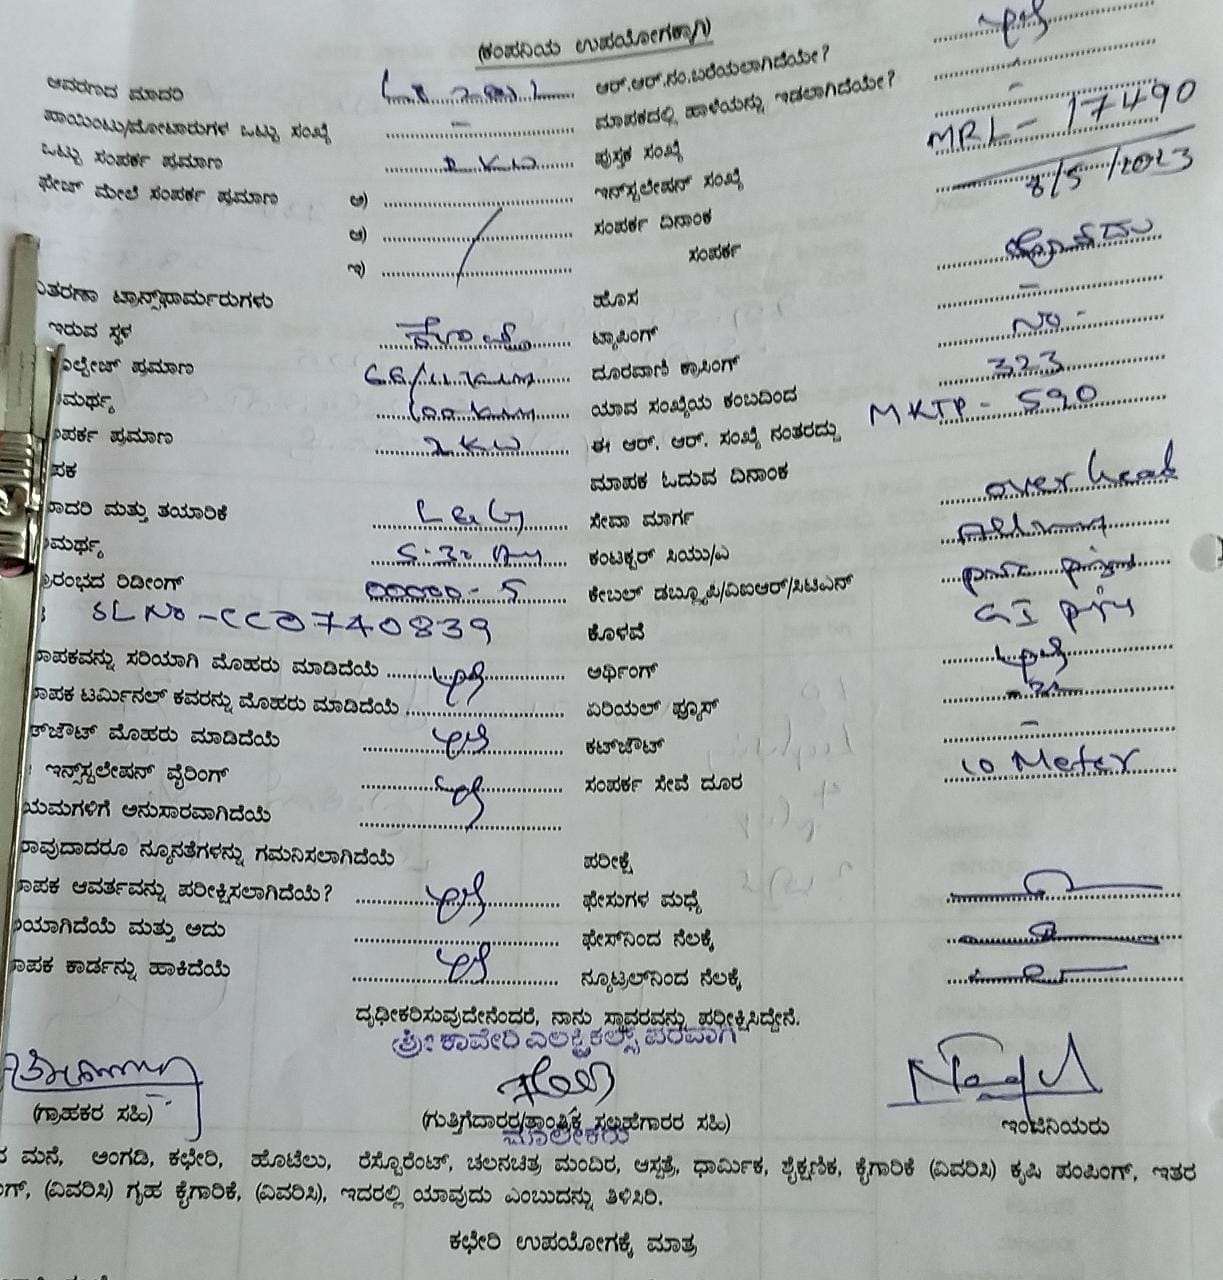 (ಕಂಪನಿಯ ಉಪಯೋಗಕ್ಕಾಗಿ)
ಆವರಣದ ಮಾದರಿ ಆರ್.ಆರ್.ನಂ.ಬರೆಯಲಾಗಿದೆಯೇ?
ಪಾಯಿಂಟು/ಮೋಟಾರುಗಳ ಒಟ್ಟು ಸಂಖ್ಯೆ - ಮಾಪಕದಲ್ಲಿ ಹಾಳೆಯನ್ನು ಇಡಲಾಗಿದೆಯೇ? -
ಒಟ್ಟು ಸಂಪರ್ಕ ಪ್ರಮಾಣ KW ಪುಸ್ತಕ ಸಂಖ್ಯೆ -
ಫೇಜ್ ಮೇಲೆ ಸಂಪರ್ಕ ಪ್ರಮಾಣ ಅ) ಇನ್‌ಸ್ಟಲೇಷನ್ ಸಂಖ್ಯೆ MRL - 17490
ಆ) ಸಂಪರ್ಕ ದಿನಾಂಕ 8/5/2023
ಇ) ಸಂಪರ್ಕ
ವಿತರಣಾ ಟ್ರಾನ್ಸ್‌ಫಾರ್ಮರುಗಳು ಹೊಸ
ಇರುವ ಸ್ಥಳ ಟ್ಯಾಪಿಂಗ್ -
ವೋಲ್ಟೇಜ್ ಪ್ರಮಾಣ ದೂರವಾಣಿ ಕ್ರಾಸಿಂಗ್ No -
ಸಾಮರ್ಥ್ಯ ಯಾವ ಸಂಖ್ಯೆಯ ಕಂಬದಿಂದ 323
ಸಂಪರ್ಕ ಪ್ರಮಾಣ 2 KW ಈ ಆರ್. ಆರ್. ಸಂಖ್ಯೆ ನಂತರದ್ದು MKTP - 590
ಮಾಪಕ ಮಾಪಕ ಓದುವ ದಿನಾಂಕ
ಮಾದರಿ ಮತ್ತು ತಯಾರಿಕೆ L & G ಸೇವಾ ಮಾರ್ಗ over head
ಸಾಮರ್ಥ್ಯ 5-30 ಕಂಡಕ್ಟರ್ ಸಿಯು/ಎ
ಪ್ರಾರಂಭದ ರಿಡೀಂಗ್ 00000 - 5 ಕೇಬಲ್ ಡಬ್ಲ್ಯೂಪಿ/ವಿಐಆರ್/ಸಿಟಿಎಸ್
SL No - CC0740839 ಕೊಳವೆ GI
ಮಾಪಕವನ್ನು ಸರಿಯಾಗಿ ಮೊಹರು ಮಾಡಿದೆಯೆ ಅರ್ಥಿಂಗ್
ಮಾಪಕ ಟರ್ಮಿನಲ್ ಕವರನ್ನು ಮೊಹರು ಮಾಡಿದೆಯೆ ಏರಿಯಲ್ ಫ್ಯೂಸ್
ಕಟ್‌ಔಟ್ ಮೊಹರು ಮಾಡಿದೆಯೆ ಕಟ್‌ಔಟ್ -
ಇನ್ಸ್‌ಸ್ಟಲೇಷನ್ ವೈರಿಂಗ್ ಸಂಪರ್ಕ ಸೇವೆ ದೂರ 10 Meter
ನಿಯಮಗಳಿಗೆ ಅನುಸಾರವಾಗಿದೆಯೆ
ಯಾವುದಾದರೂ ನ್ಯೂನತೆಗಳನ್ನು ಗಮನಿಸಲಾಗಿದೆಯೆ ಪರೀಕ್ಷೆ
ಮಾಪಕ ಆವರ್ತವನ್ನು ಪರೀಕ್ಷಿಸಲಾಗಿದೆಯೆ? ಫೇಸುಗಳ ಮಧ್ಯೆ
ಸರಿಯಾಗಿದೆಯೆ ಮತ್ತು ಅದು ಫೇಸ್‌ನಿಂದ ನೆಲಕ್ಕೆ
ಮಾಪಕ ಕಾರ್ಡನ್ನು ಹಾಕಿದೆಯೆ ನ್ಯೂಟ್ರಲ್‌ನಿಂದ ನೆಲಕ್ಕೆ
ದೃಢೀಕರಿಸುವುದೇನೆಂದರೆ, ನಾನು ಸ್ಥಾವರವನ್ನು ಪರೀಕ್ಷಿಸಿದ್ದೇನೆ.
ಶ್ರೀ ಕಾವೇರಿ ಎಲೆಕ್ಟ್ರಿಕಲ್ಸ್ ಪರವಾಗಿ
(ಗ್ರಾಹಕರ ಸಹಿ) (ಗುತ್ತಿಗೆದಾರರ/ತಾಂತ್ರಿಕ ಸಲಹೆಗಾರರ ಸಹಿ) ಇಂಜಿನಿಯರು
ಮಾಲೀಕರು
ಮನೆ, ಅಂಗಡಿ, ಕಛೇರಿ, ಹೊಟೆಲು, ರೆಸ್ಟೊರೆಂಟ್, ಚಲನಚಿತ್ರ ಮಂದಿರ, ಆಸ್ಪತ್ರೆ, ಧಾರ್ಮಿಕ, ಶೈಕ್ಷಣಿಕ, ಕೈಗಾರಿಕೆ (ವಿವರಿಸಿ) ಕೃಷಿ ಪಂಪಿಂಗ್, ಇತರ
(ವಿವರಿಸಿ) ಗೃಹ ಕೈಗಾರಿಕೆ, (ವಿವರಿಸಿ), ಇದರಲ್ಲಿ ಯಾವುದು ಎಂಬುದನ್ನು ತಿಳಿಸಿರಿ.
ಕಛೇರಿ ಉಪಯೋಗಕ್ಕೆ ಮಾತ್ರ